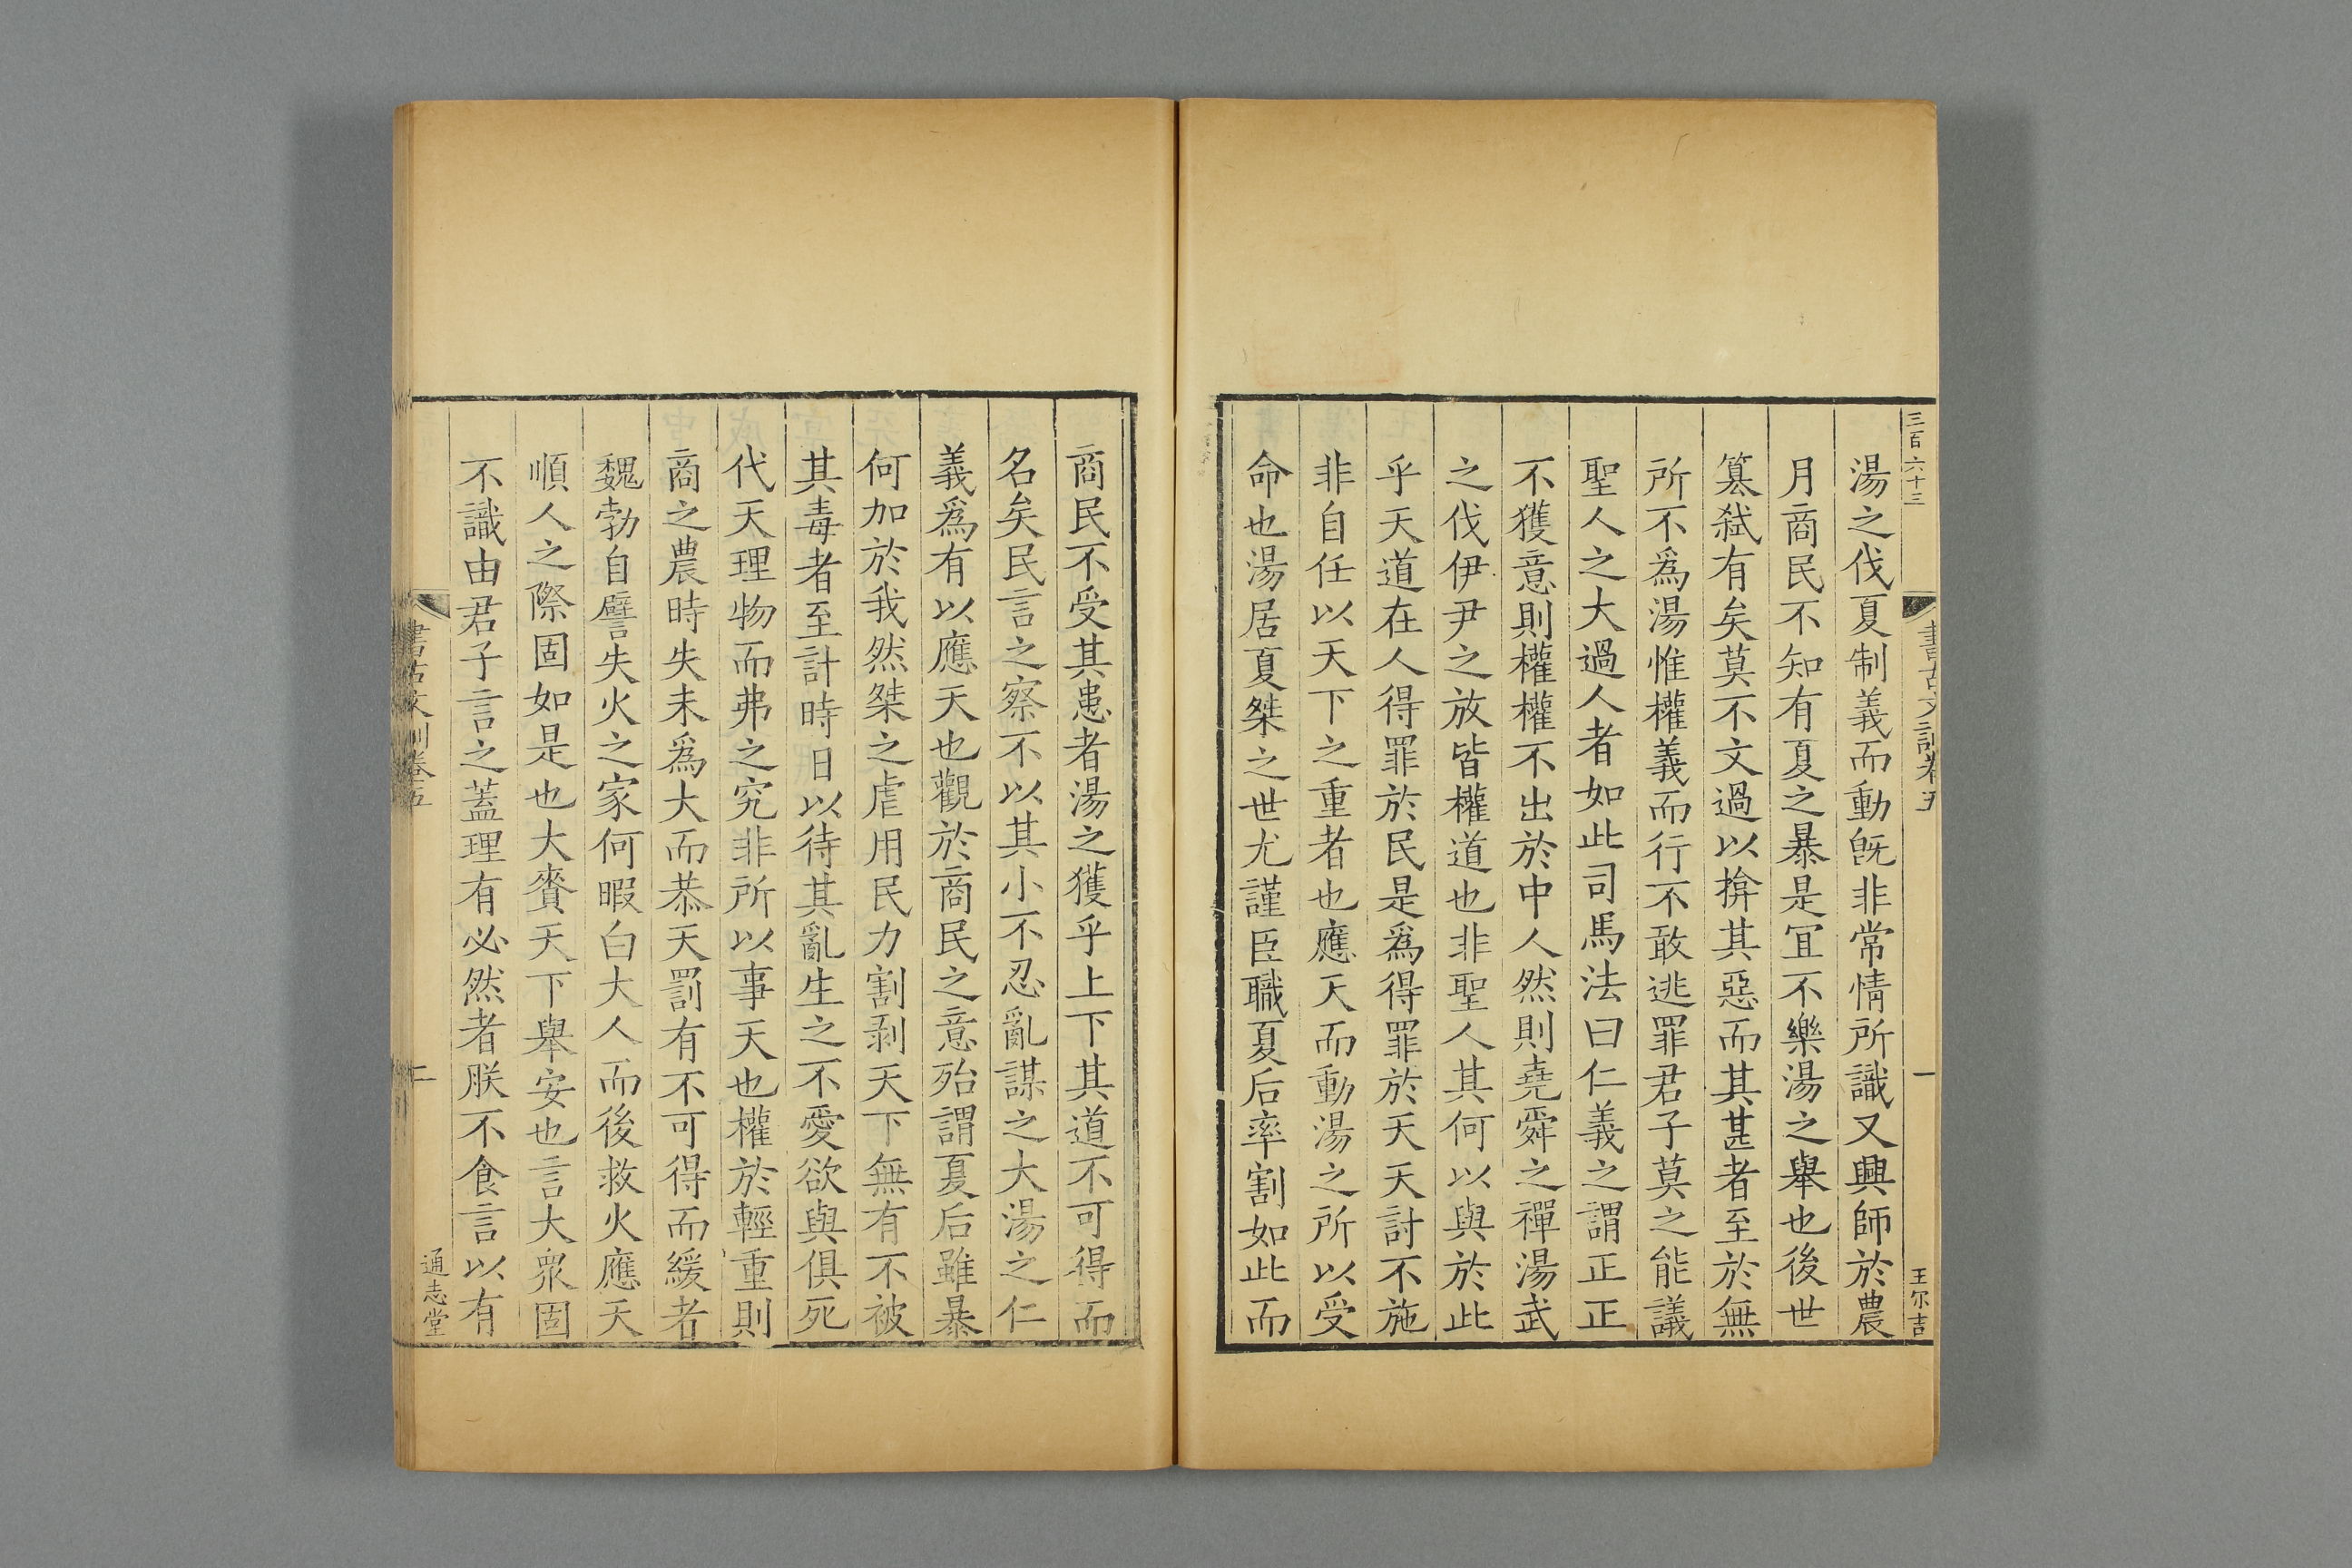 三百六十三
書古文訓卷五
一
王尔吉
湯之伐夏制義而動旣非常情所識又興師於農
月商民不知有夏之暴是冝不樂湯之舉也後世
簒弑有矣莫不文過以揜其惡而其甚者至於無
所不爲湯惟權義而行不敢逃罪君子莫之能議
聖人之大過人者如此司馬法曰仁義之謂正正
不獲意則權權不出於中人然則堯舜之禪湯武
之伐伊尹之放皆權道也非聖人其何以與於此
乎天道在人得罪於民是爲得罪於天天討不施
非自任以天下之重者也應天而動湯之所以受
命也湯居夏桀之世尤謹臣職夏后率割如此而
商民不受其患者湯之獲乎上下其道不可得而
名矣民言之察不以其小不忍亂謀之大湯之仁
義爲有以應天也觀於商民之意殆謂夏后雖暴
何加於我然桀之虐用民力割剥天下無有不被
其毒者至計時日以待其亂生之不愛欲與俱死
代天理物而弗之究非所以事天也權於輕重則
商之農時失未爲大而恭天罰有不可得而緩者
魏勃自譬失火之家何暇白大人而後救火應天
順人之際固如是也大賚天下舉安也言大衆固
不識由君子言之蓋理有必然者朕不食言以有
書古文訓卷五
二
通志堂